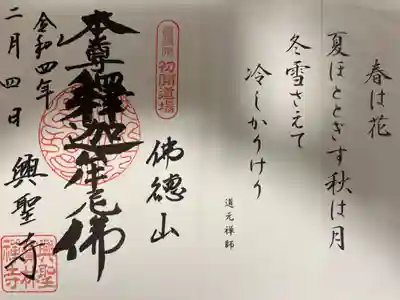 春は花
夏ほとときす秋は月
冬雪さえて
冷しかりけり
道元禅師
初開道場
佛德山
本尊釋迦牟尼佛
令和四年
二月四日
興聖寺